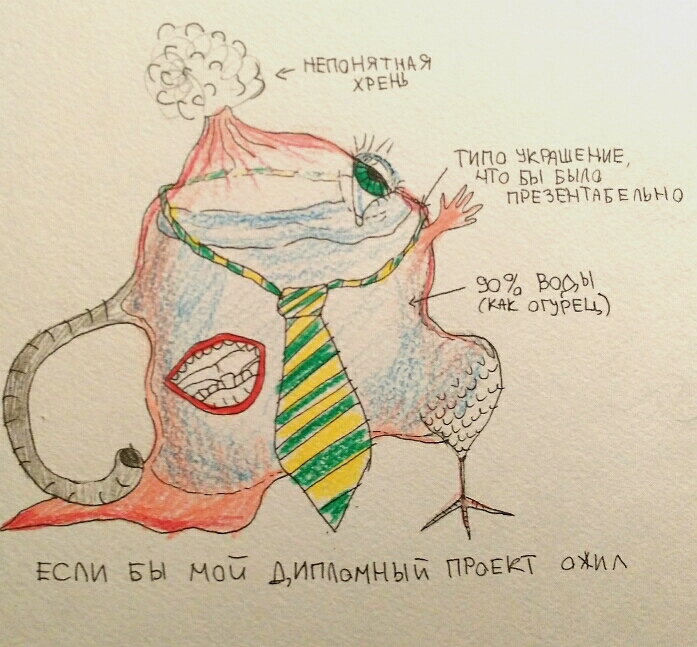 НЕПОНЯТНАЯ
ХРЕНЬ
ТИПО УКРАШЕНИЕ,
ЧТО БЫ БЫЛО
ПРЕЗЕНТАБЕЛЬНО
90% ВОДЫ
(КАК ОГУРЕЦ)
ЕСЛИ БЫ МОЙ ДИПЛОМНЫЙ ПРОЕКТ ОЖИЛ